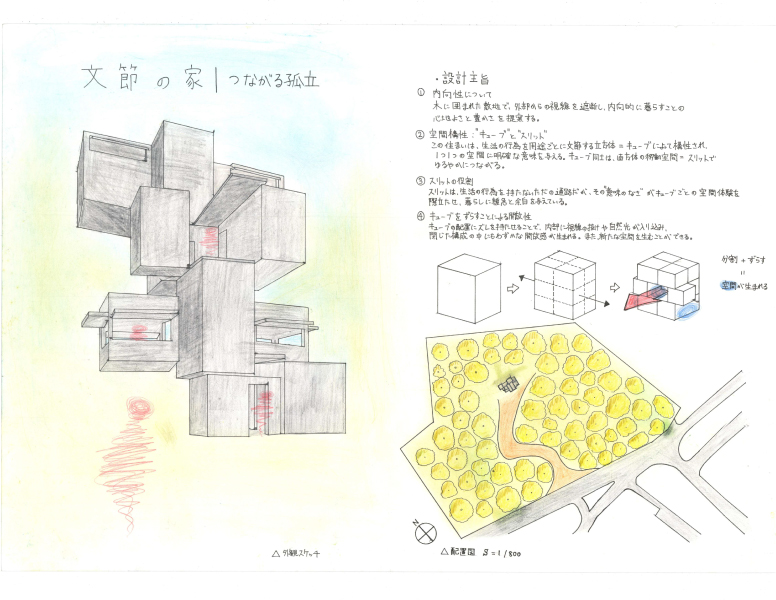 文節の家 | つながる孤立
・設計主旨
① 内向性について
木に囲まれた敷地で、外部からの視線を遮断し、内向的に暮らすことの
心地よさと豊かさを提案する。
② 空間構性:"キューブ"と"スリット"
この住まいは、生活の行為を用途ごとに文節する立方体=キューブによって構性され、
1つ1つの空間に明確な意味を与える。キューブ同士は、直方体の移動空間=スリットで
ゆるやかにつながる。
③ スリットの役割
スリットは、生活の行為を持たないただの通路だが、その"意味のなさ"がキューブごとの空間体験を
際立たせ、暮らしに緩急と余白を与えている。
④ キューブをずらすことによる開放性
キューブの配置にズレを持たせることで、内部に視線の抜けや自然光が入り込み、
閉じた構成の中にもわずかな開放感が生まれる。また、新たな空間を生むことができる。
分割+ずらす
=
空間が生まれる
N
△ 外観スケッチ
△ 配置図 S=1/800